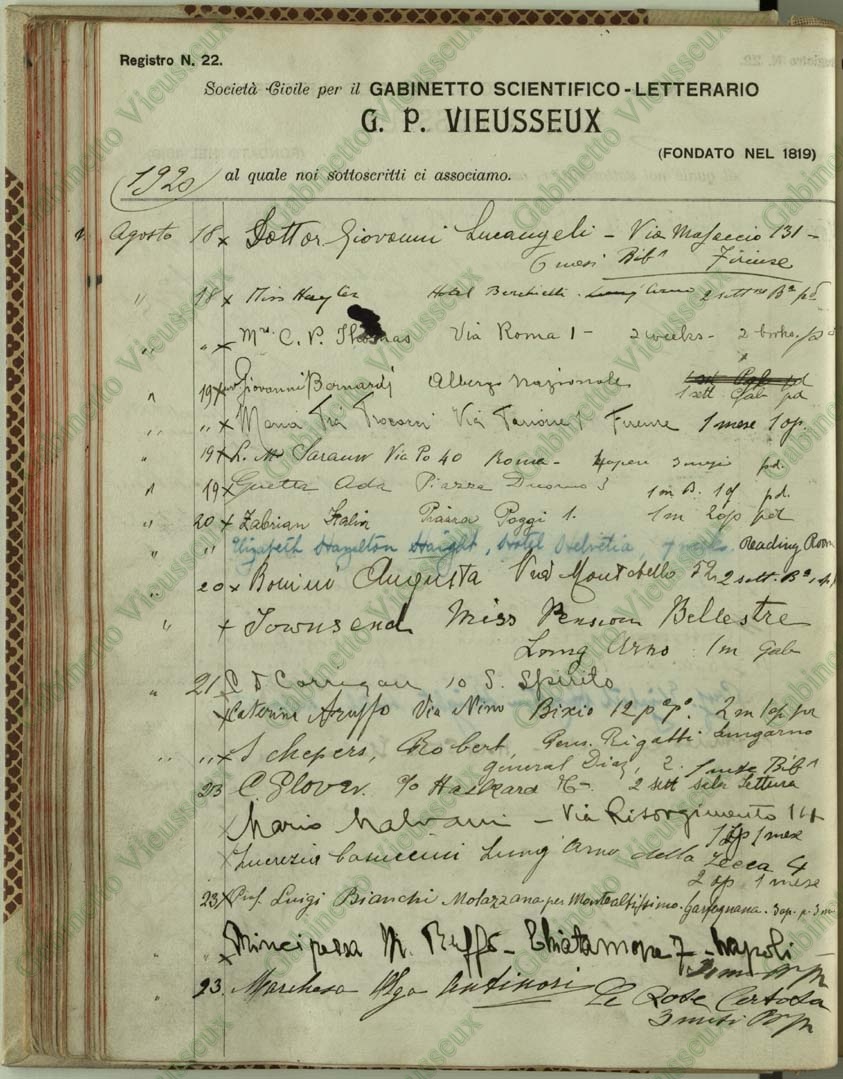 Registro N. 22.
Società Civile per il GABINETTO SCIENTIFICO-LETTERARIO
G. P. VIEUSSEUX
(FONDATO NEL 1819)
1920 al quale noi sottoscritti ci associamo.
Agosto 18 x Dottor Giovanni Lucangeli - Via Masaccio 131 -
6 mesi Bibª Firenze
" 18 x Miss Hayler Hotel Berchielli - Lung'Arno 2 sett Bª pd
" " x Mrs C. P. Thomas Via Roma 1 - 2 weeks - 2 books. pd
" 19 x Giovanni Bernardj Albergo Nazionale 1 sett Gab pd
" " x Maria Via Firenze 1 mese 1 op.
" 19 x L. M Sarauw Via Po 40 Roma - 4 opere 3 mesi pd.
" 19 x Guetta Ada Piazza Duomo 3 1 m B. 1 op pd.
" 20 x Zabrian Piazza Poggi 1. 1 m 2 op pd
" " Elizabeth Hazelton Haight, Hotel Helvetia, 7 weeks. Reading Room
" 20 x Bonino Augusta Via Montebello 52 2 sett. Bª 1 op
" x Townsend Miss Pension Bellestre
Lung Arno 1 m Gab
" 21 C D Corrigan 10 S. Spirito
x Caterina Aruffo Via Nino Bixio 12 pº pº. 2 m 1 op pd
" " x Schepers, Robert, Pens. Rigatti Lungarno
général Diaz, 2. 1 mese Bibª
23 C. Glover. c/o Haskard & C- 2 sett sala Lettura
x Mario Malvani - Via Risorgimento 14
1 op 1 mese
x Lucrezia Casuccini Lung'Arno della Zecca 4
2 op 1 mese
23 x Prof. Luigi Bianchi Molazzana per Montealtissimo - Garfagnana. 3 op. p. 3 m.
" x Principessa M. Ruffo - Chiatamone 7 - Napoli
" 23. Marchesa Olga Antinori Le Rose Certosa
3 mesi
Gabinetto Vieusseux